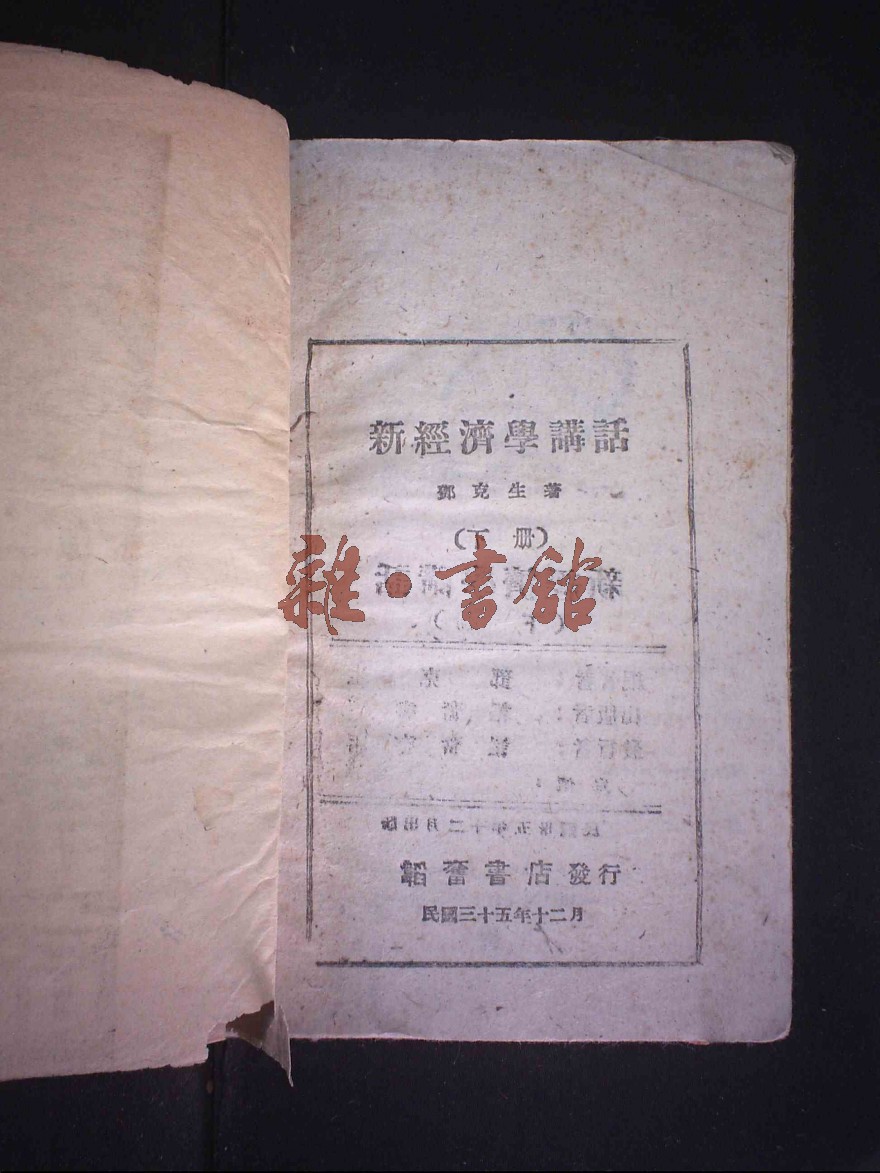 新經濟學講話
鄧克生著
(下册)
雜·書館
韜奮書店發行
民國三十五年十二月